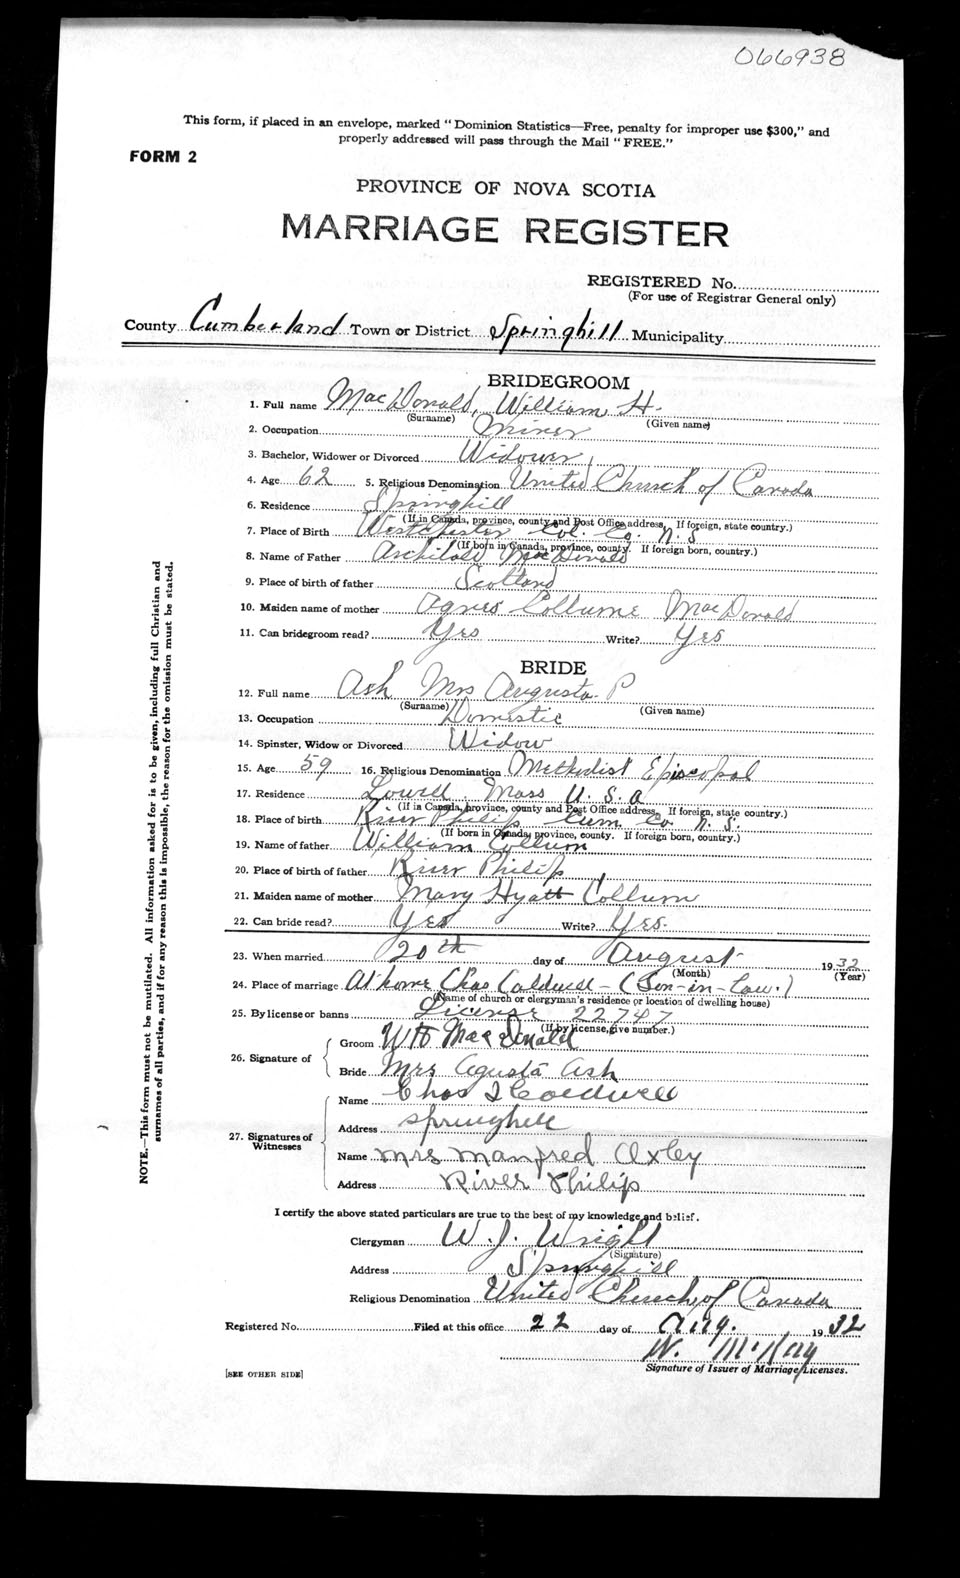 066938
This form, if placed in an envelope, marked "Dominion Statistics—Free, penalty for improper use $300," and
properly addressed will pass through the Mail "FREE."
FORM 2
PROVINCE OF NOVA SCOTIA
MARRIAGE REGISTER
REGISTERED No.
(For use of Registrar General only)
County Cumberland Town or District Springhill Municipality
BRIDEGROOM
1. Full name MacDonald, William H.
(Surname) (Given name)
2. Occupation Miner
3. Bachelor, Widower or Divorced Widower
4. Age 62 5. Religious Denomination United Church of Canada
6. Residence Springhill
(If in Canada, province, county and Post Office address. If foreign, state country.)
7. Place of Birth Westchester Col. Co. N. S
(If born in Canada, province, county. If foreign born, country.)
8. Name of Father Archibald MacDonald
9. Place of birth of father Scotland
10. Maiden name of mother Agnes Collume MacDonald
11. Can bridegroom read? Yes Write? Yes
BRIDE
12. Full name Ash Mrs Augusta P
(Surname) (Given name)
13. Occupation Domestic
14. Spinster, Widow or Divorced Widow
15. Age 59 16. Religious Denomination Methodist Episcopal
17. Residence Lowell, Mass U. S. A
(If in Canada, province, county and Post Office address. If foreign, state country.)
18. Place of birth River Philip Cum. Co. N. S.
(If born in Canada, province, county. If foreign born, country.)
19. Name of father William Collum
20. Place of birth of father River Philip
21. Maiden name of mother Mary Hyatt Collum
22. Can bride read? Yes Write? Yes.
23. When married 20th day of August 1932
(Month) (Year)
24. Place of marriage At home Chas Caldwell - (Son-in-law.)
(Name of church or clergyman's residence or location of dwelling house)
25. By license or banns License 22747
(If by license, give number.)
26. Signature of
Groom W H MacDonald
Bride Mrs Agusta Ash
27. Signatures of Witnesses
Name Chas Coldwell
Address Springhill
Name Mrs Manfred Oxley
Address River Philip
I certify the above stated particulars are true to the best of my knowledge and belief.
Clergyman W. J. Wright
(Signature)
Address Springhill
Religious Denomination United Church of Canada
Registered No. Filed at this office 22 day of Aug. 1932
W. McKay
Signature of Issuer of Marriage Licenses.
[SEE OTHER SIDE]
NOTE.—This form must not be mutilated. All information asked for is to be given, including full Christian and
surnames of all parties, and if for any reason this is impossible, the reason for the omission must be stated.